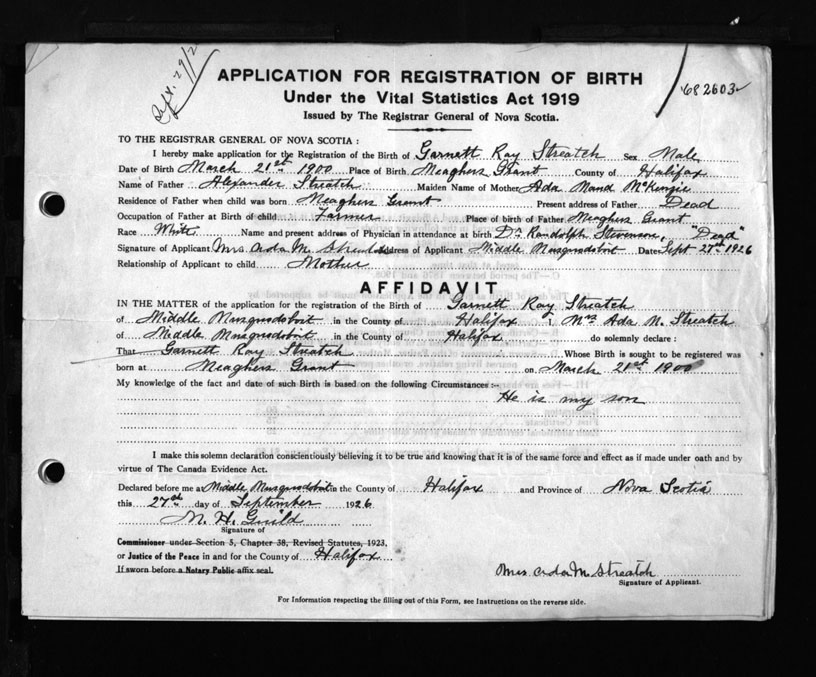 Sept. 29/2
682603
APPLICATION FOR REGISTRATION OF BIRTH
Under the Vital Statistics Act 1919
Issued by The Registrar General of Nova Scotia.
TO THE REGISTRAR GENERAL OF NOVA SCOTIA :
I hereby make application for the Registration of the Birth of Garnett Ray Streatch Sex Male
Date of Birth March 21st 1900 Place of Birth Meaghers Grant County of Halifax
Name of Father Alexander Streatch Maiden Name of Mother Ada Maud McKenzie
Residence of Father when child was born Meaghers Grant Present address of Father Dead
Occupation of Father at Birth of child Farmer Place of birth of Father Meaghers Grant
Race White Name and present address of Physician in attendance at birth Dr. Randolph Stevenson, "Dead"
Signature of Applicant Mrs Ada M. Streatch Address of Applicant Middle Musquodoboit Date Sept 27th 1926
Relationship of Applicant to child Mother
AFFIDAVIT
IN THE MATTER of the application for the registration of the Birth of Garnett Ray Streatch
of Middle Musquodoboit in the County of Halifax I, Mrs Ada M. Streatch
of Middle Musquodoboit in the County of Halifax do solemnly declare :
That Garnett Ray Streatch Whose Birth is sought to be registered was
born at Meaghers Grant on March 21st 1900
My knowledge of the fact and date of such Birth is based on the following Circumstances :-
He is my son
I make this solemn declaration conscientiously believing it to be true and knowing that it is of the same force and effect as if made under oath and by
virtue of The Canada Evidence Act.
Declared before me at Middle Musquodoboit in the County of Halifax and Province of Nova Scotia
this 27th day of September 1926
M. H. Guild
Signature of
Commissioner under Section 5, Chapter 38, Revised Statutes, 1923,
or Justice of the Peace in and for the County of Halifax
If sworn before a Notary Public affix seal.
Mrs Ada M Streatch
Signature of Applicant.
For Information respecting the filling out of this Form, see Instructions on the reverse side.